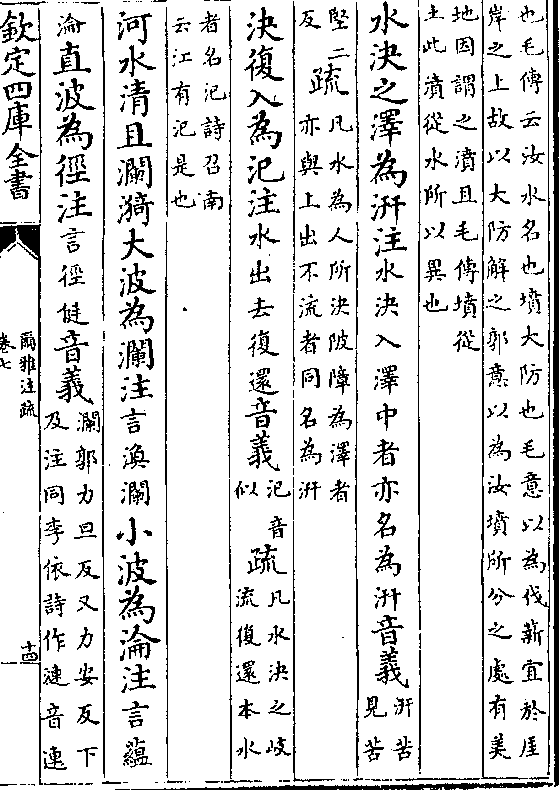 也毛傳云汝水名也墳大防也毛意以為伐薪宜於厓
岸之上故以大防解之郭意以為汝墳所分之處有美
地因謂之濆且毛傳墳從
土此濆從水所以異也
水決之澤為汧注水決入澤中者亦名為汧音義汧苦
見苦
堅二
反疏凡水為人所決陂障為澤者
亦與上出不流者同名為汧
決復入為汜注水出去復還音義汜音
似疏凡水決之岐
流復還本水
者名汜詩召南
云江有汜是也
河水清且瀾漪大波為瀾注言渙瀾小波為淪注言蘊
淪直波為徑注言徑侹音義瀾郭力旦反又力安反下
及注同李依詩作漣音連
欽定四庫全書
爾雅注疏
卷七
十四